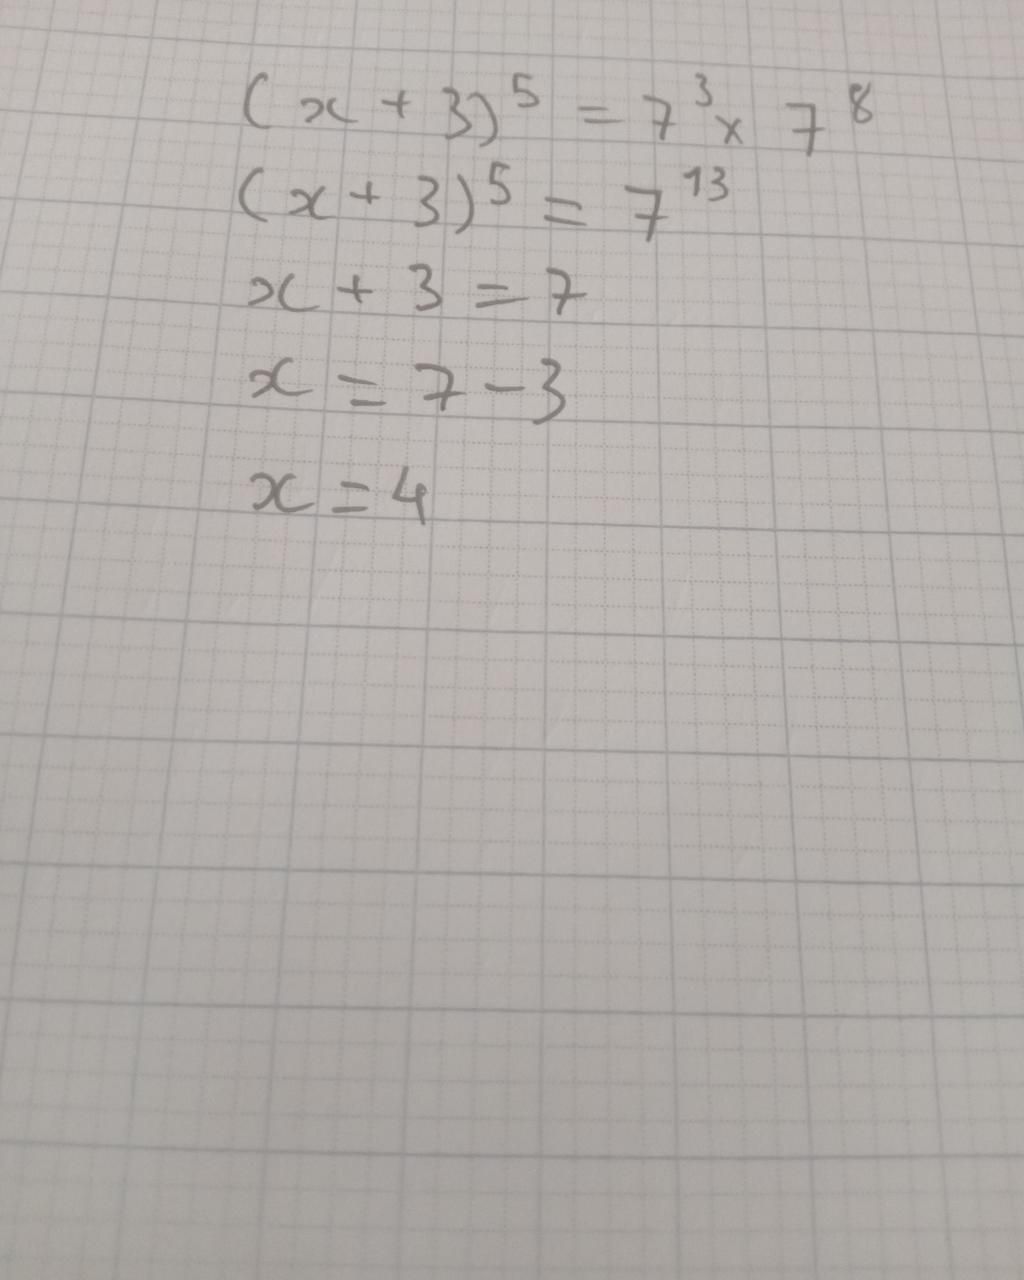 (x + 3)⁵ = 7³ × 7⁸
(x + 3)⁵ = 7¹³
x + 3 = 7
x = 7 - 3
x = 4